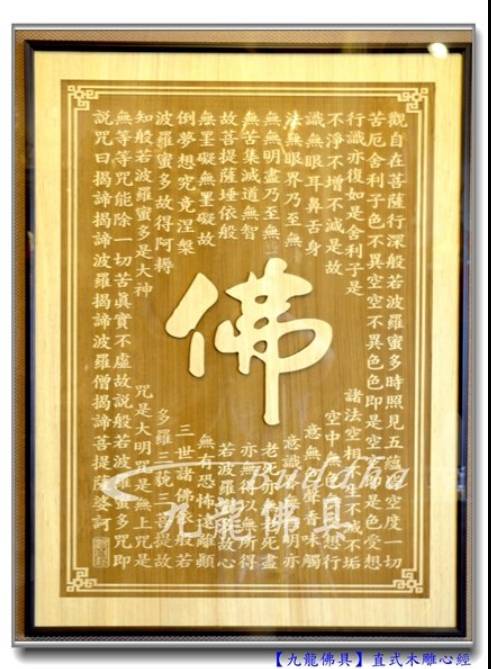 觀自在菩薩行深般若波羅蜜多時照見五蘊皆空度一切
苦厄舍利子色不異空空不異色色即是空空即是色受想
行識亦復如是舍利子是
諸法空相不生不滅不垢
不淨不增不減是故
空中無色無受想行
識無眼耳鼻舌身
意無色聲香味觸
法無眼界乃至無
意識界無無明亦
無無明盡乃至無
老死亦無老死盡
無苦集滅道無智
亦無得以無所得
故菩提薩埵依般
若波羅蜜多故心
無罣礙無罣礙故
無有恐怖遠離顛
倒夢想究竟涅槃
三世諸佛依般若
波羅蜜多故得阿耨
多羅三藐三菩提故
知般若波羅蜜多是大神
咒是大明咒是無上咒是
無等等咒能除一切苦真實不虛故說般若波羅蜜多咒即
說咒曰揭諦揭諦波羅揭諦波羅僧揭諦菩提薩婆訶
佛
Buddha
九龍佛具
【九龍佛具】直式木雕心經